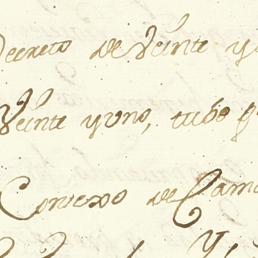 Decreto de Veinte y
Veinte y uno, tubo
Consexo de Cam
y,